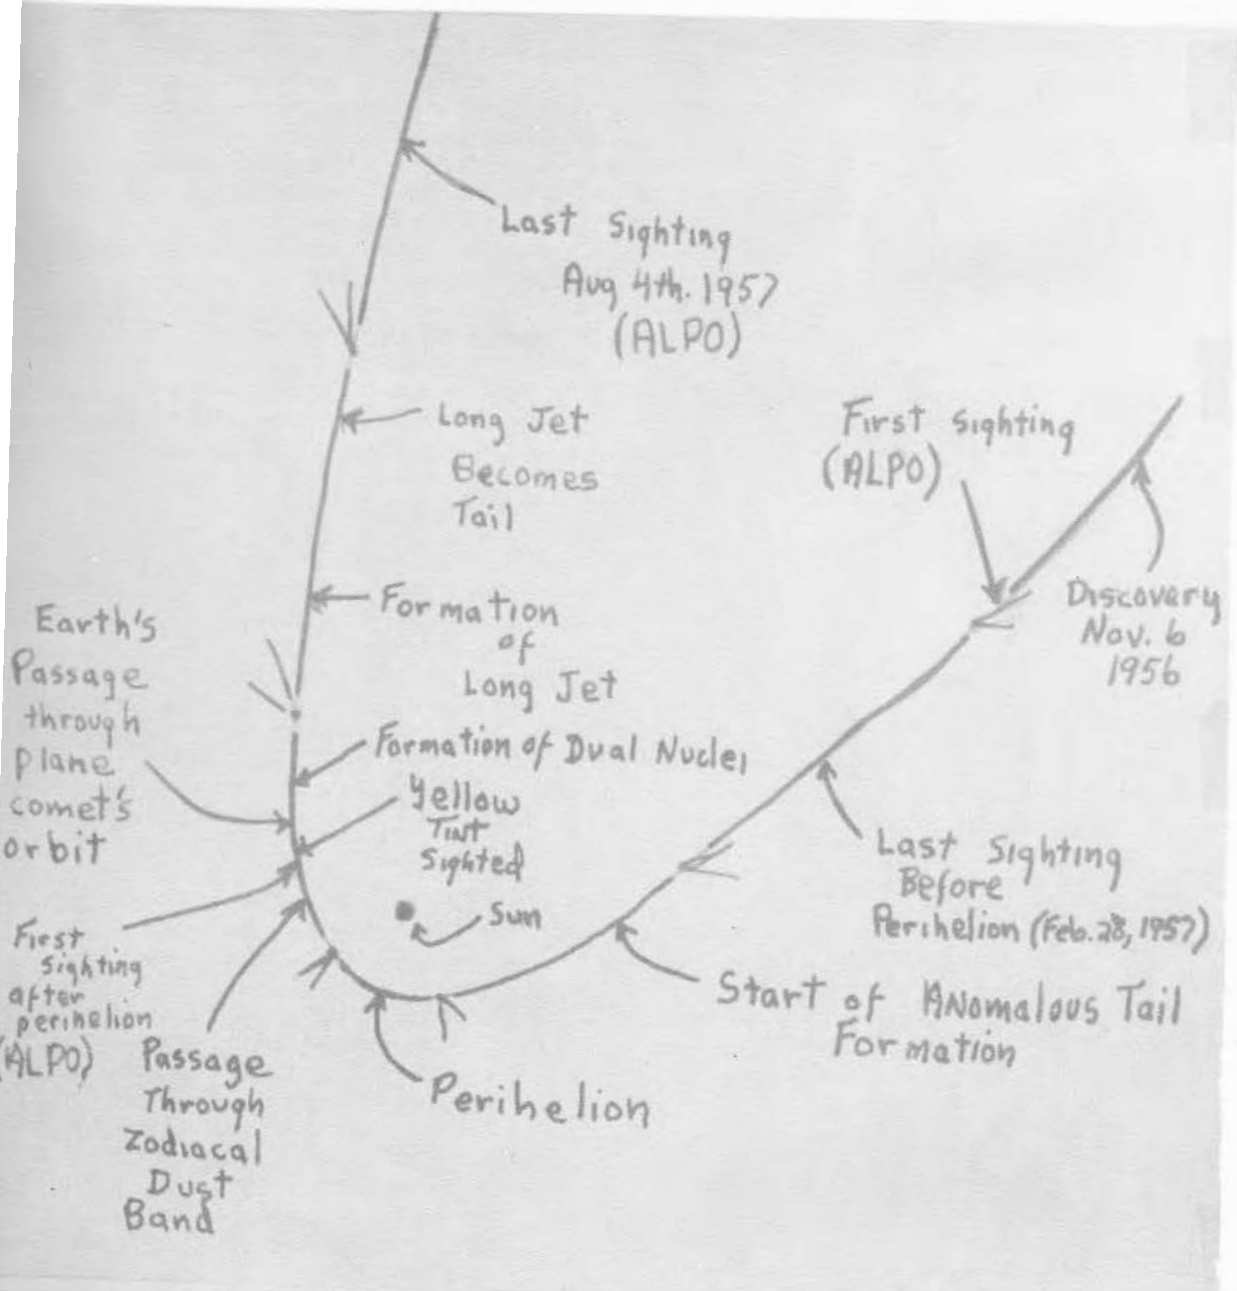 Last Sighting
Aug 4th. 1957
(ALPO)
Long Jet
Becomes
Tail
First sighting
(ALPO)
Discovery
Nov. 6
1956
Formation
of
Long Jet
Earth's
Passage
through
plane
comet's
orbit
Formation of Dual Nuclei
Yellow
Tint
Sighted
Sun
Last Sighting
Before
Perihelion (Feb. 28, 1957)
First
sighting
after
perihelion
(ALPO)
Start of Anomalous Tail
Formation
Passage
Through
Zodiacal
Dust
Band
Perihelion